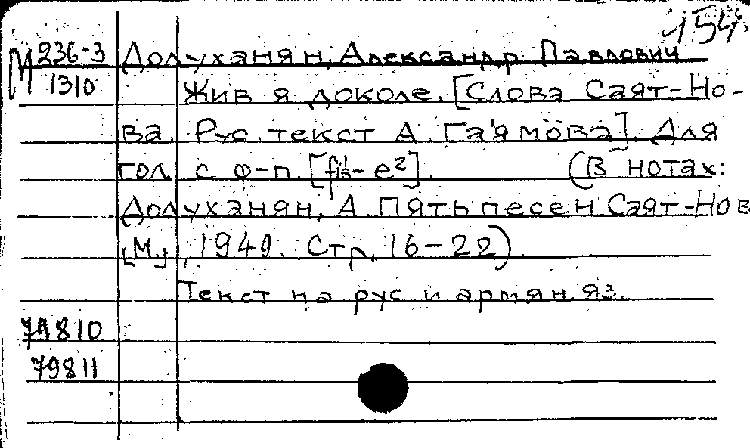 154.
М 236-3 Долуханян, Александр Павлович
1310 Жив я доколе. [Слова Саят-Но-
ва. Рус. текст А. Гаямова]. Для
гол. с ф-п. [fis-e²]. (В нотах:
Долуханян, А. Пять песен Саят-Нов
[М.], 1949. Стр. 16-22).
Текст на рус. и армян. яз.
79810
79811